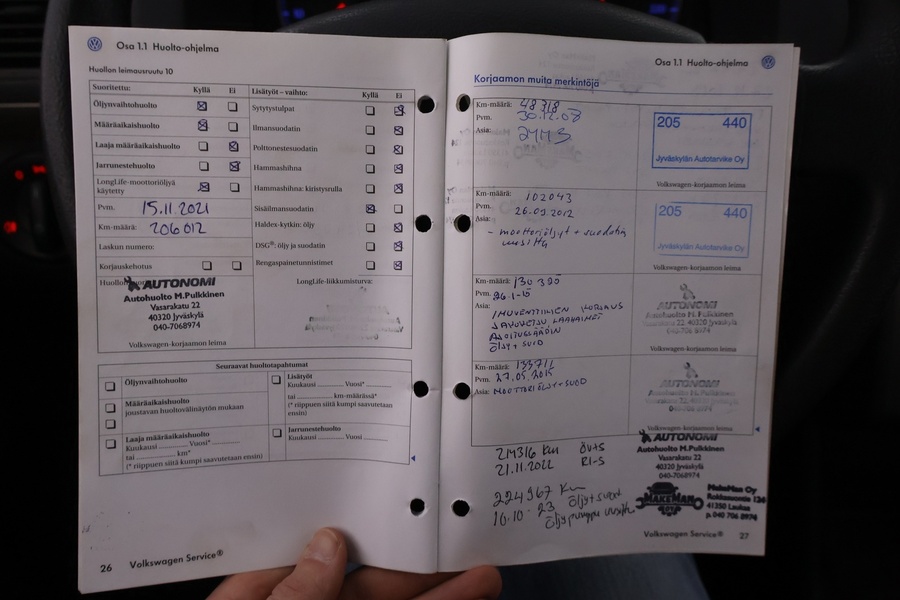 Osa 1.1 Huolto-ohjelma
Huollon leimausruutu 10
Suoritettu: Kyllä Ei
Öljynvaihtohuolto
Määräaikaishuolto
Laaja määräaikaishuolto
Jarrunestehuolto
LongLife-moottoriöljyä
käytetty
Pvm. 15.11.2021
Km-määrä: 206 012
Laskun numero:
Korjauskehotus
AUTONOMI
Autohuolto M.Pulkkinen
Vasarakatu 22
40320 Jyväskylä
040-7068974
Volkswagen-korjaamon leima
Lisätyöt – vaihto: Kyllä Ei
Sytytystulpat
Ilmansuodatin
Polttonestesuodatin
Hammashihna
Hammashihna: kiristysrulla
Sisäilmansuodatin
Haldex-kytkin: öljy
DSG®: öljy ja suodatin
Rengaspainetunnistimet
LongLife-liikkumisturva:
Seuraavat huoltotapahtumat
Öljynvaihtohuolto
Määräaikaishuolto
joustavan huoltovälinäytön mukaan
Laaja määräaikaishuolto
Kuukausi Vuosi*
tai km*
(* riippuen siitä kumpi saavutetaan ensin)
Lisätyöt
Kuukausi Vuosi*
tai km-määrässä*
(* riippuen siitä kumpi saavutetaan
ensin)
Jarrunestehuolto
Kuukausi Vuosi
26 Volkswagen Service®
Osa 1.1 Huolto-ohjelma
Korjaamon muita merkintöjä
Km-määrä: 48718
Pvm. 30.12.08
Asia:
205 440
Jyväskylän Autotarvike Oy
Volkswagen-korjaamon leima
Km-määrä: 102043
Pvm. 26.09.2012
Asia:
- moottoriöljyt + suodatin
205 440
Jyväskylän Autotarvike Oy
Volkswagen-korjaamon leima
Km-määrä:
Pvm. 26.1-15
Asia:
öljy + suod
AUTONOMI
Autohuolto M. Pulkkinen
Volkswagen-korjaamon leima
Km-määrä:
Pvm. 27.05.2015
Asia: Moottoriöljy+suod
AUTONOMI
Volkswagen-korjaamon leima
km ÖV+S
21.11.2022
AUTONOMI
Autohuolto M.Pulkkinen
Vasarakatu 22
40320 Jyväskylä
040-7068974
224967 Km
10.10-23 Öljy+suod
MAKEMAN
MakeMan Oy
41350 Laukaa
p.040 706 8974
Volkswagen Service® 27